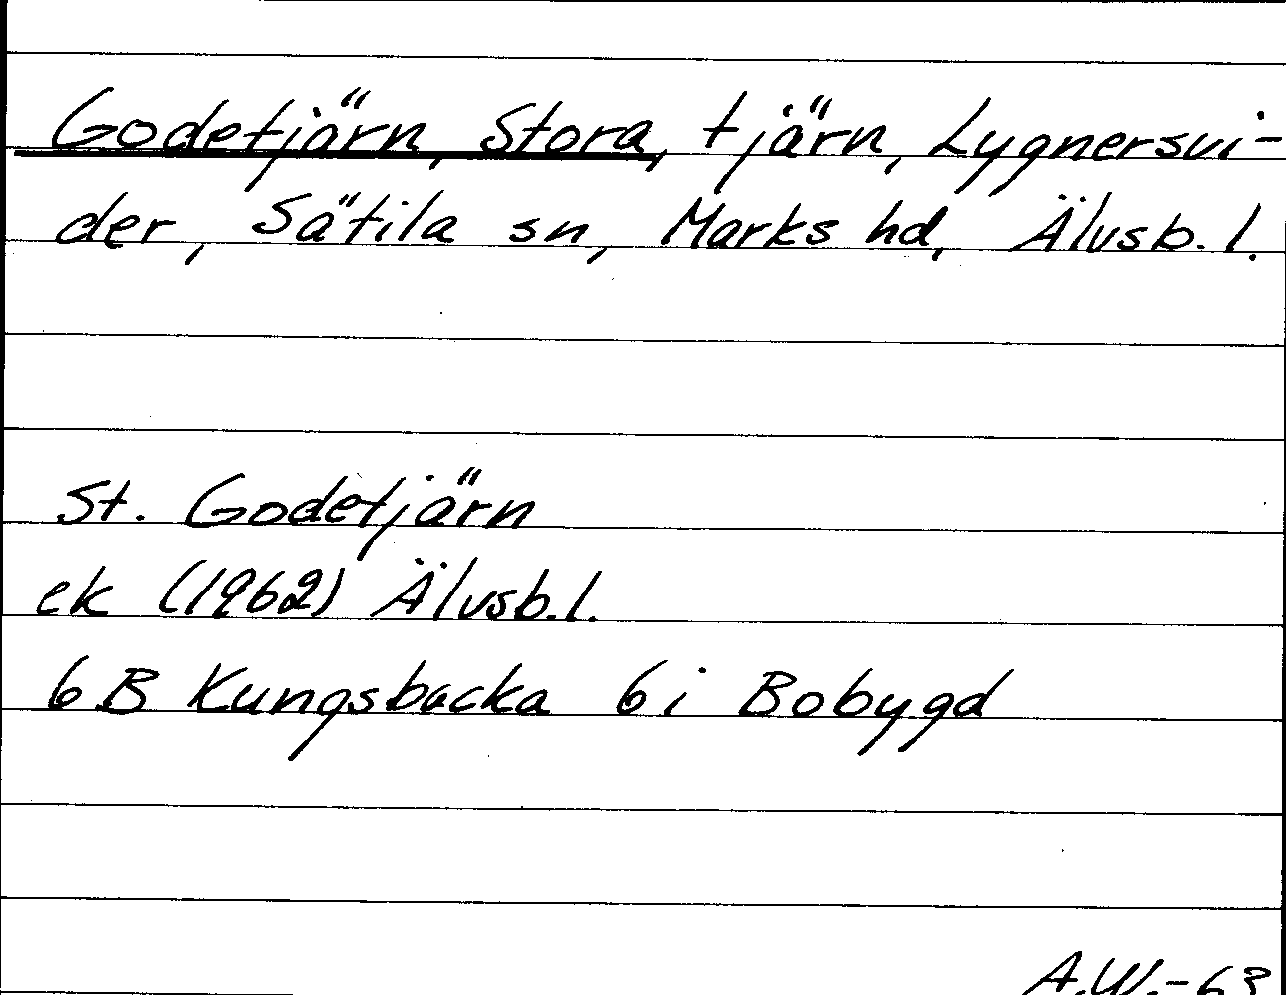 Godetjärn, Stora, tjärn, Lygnersvi-
der, Sätila sn, Marks hd, Älvsb. l.
St. Godetjärn
ek (1962) Älvsb. l.
6 B Kungsbacka 6 i Bobygd
A.W.-63